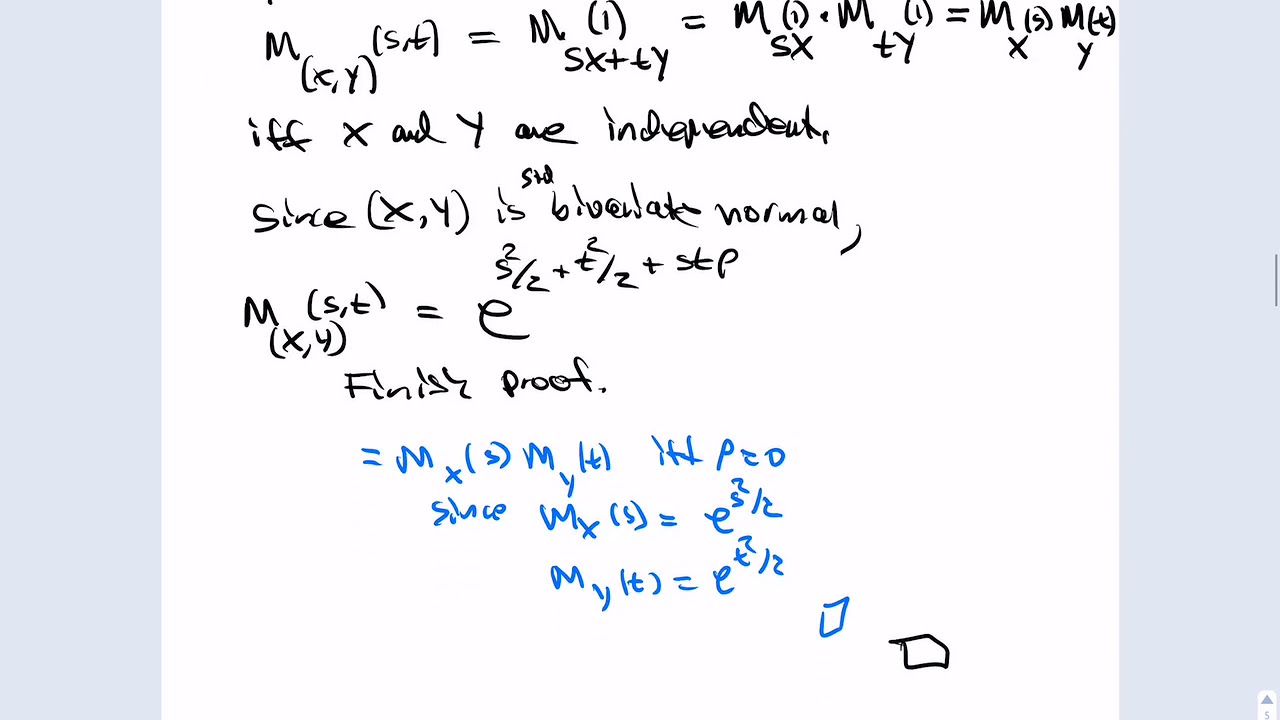 M_(X,Y)(s,t) = M_sX+tY(1) = M_sX(1) · M_tY(1) = M_X(s) M_Y(t)
iff X and Y are independent.
Since (X,Y) is std bivariate normal,
M_(X,Y)(s,t) = e^(s²/2 + t²/2 + stρ)
Finish proof.
= M_X(s) M_Y(t) iff ρ=0
since M_X(s) = e^(s²/2)
M_Y(t) = e^(t²/2)
5